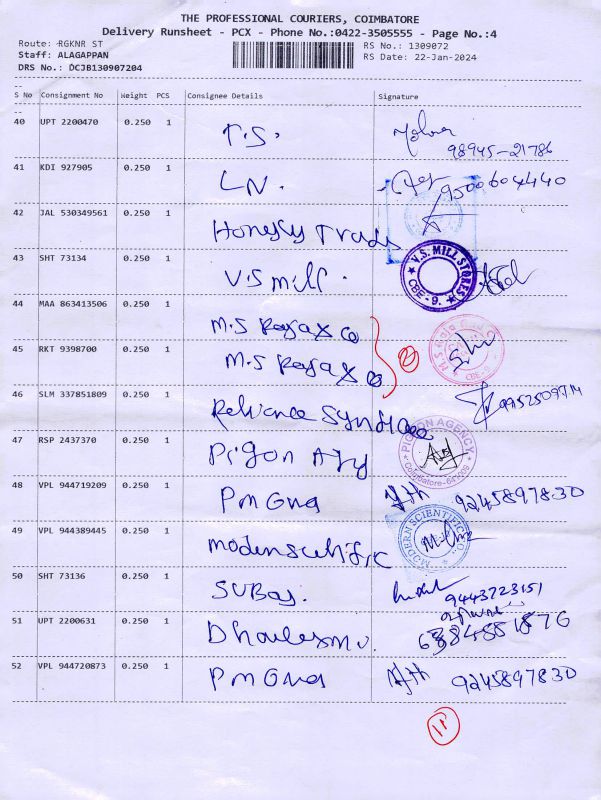 THE PROFESSIONAL COURIERS, COIMBATORE
Delivery Runsheet - PCX - Phone No.:0422-3505555 - Page No.:4
Route: RGKNR ST RS No.: 1309072
Staff: ALAGAPPAN RS Date: 22-Jan-2024
DRS No.: DCJB130907204
S No Consignment No Weight PCS Consignee Details Signature
40 UPT 2200470 0.250 1 T.S.
98945-21786
41 KDI 927905 0.250 1 LN. 9500604440
42 JAL 530349561 0.250 1 Honesty Trads
43 SHT 73134 0.250 1 V.S mill. V.S. MILL STORES CBE-9.
44 MAA 863413506 0.250 1 M.S Raja & Co
45 RKT 9398700 0.250 1 M.S Raja & Co 2
46 SLM 337851809 0.250 1 Reliance
47 RSP 2437370 0.250 1 Pigon Agy PIGEON AGENCY Coimbatore-641009
48 VPL 944719209 0.250 1 PM Gna 9245897830
49 VPL 944389445 0.250 1 MODERN SCIENTIFIC CO.
50 SHT 73136 0.250 1 9443723151
51 UPT 2200631 0.250 1
52 VPL 944720873 0.250 1 PM Gna 9245897830
11